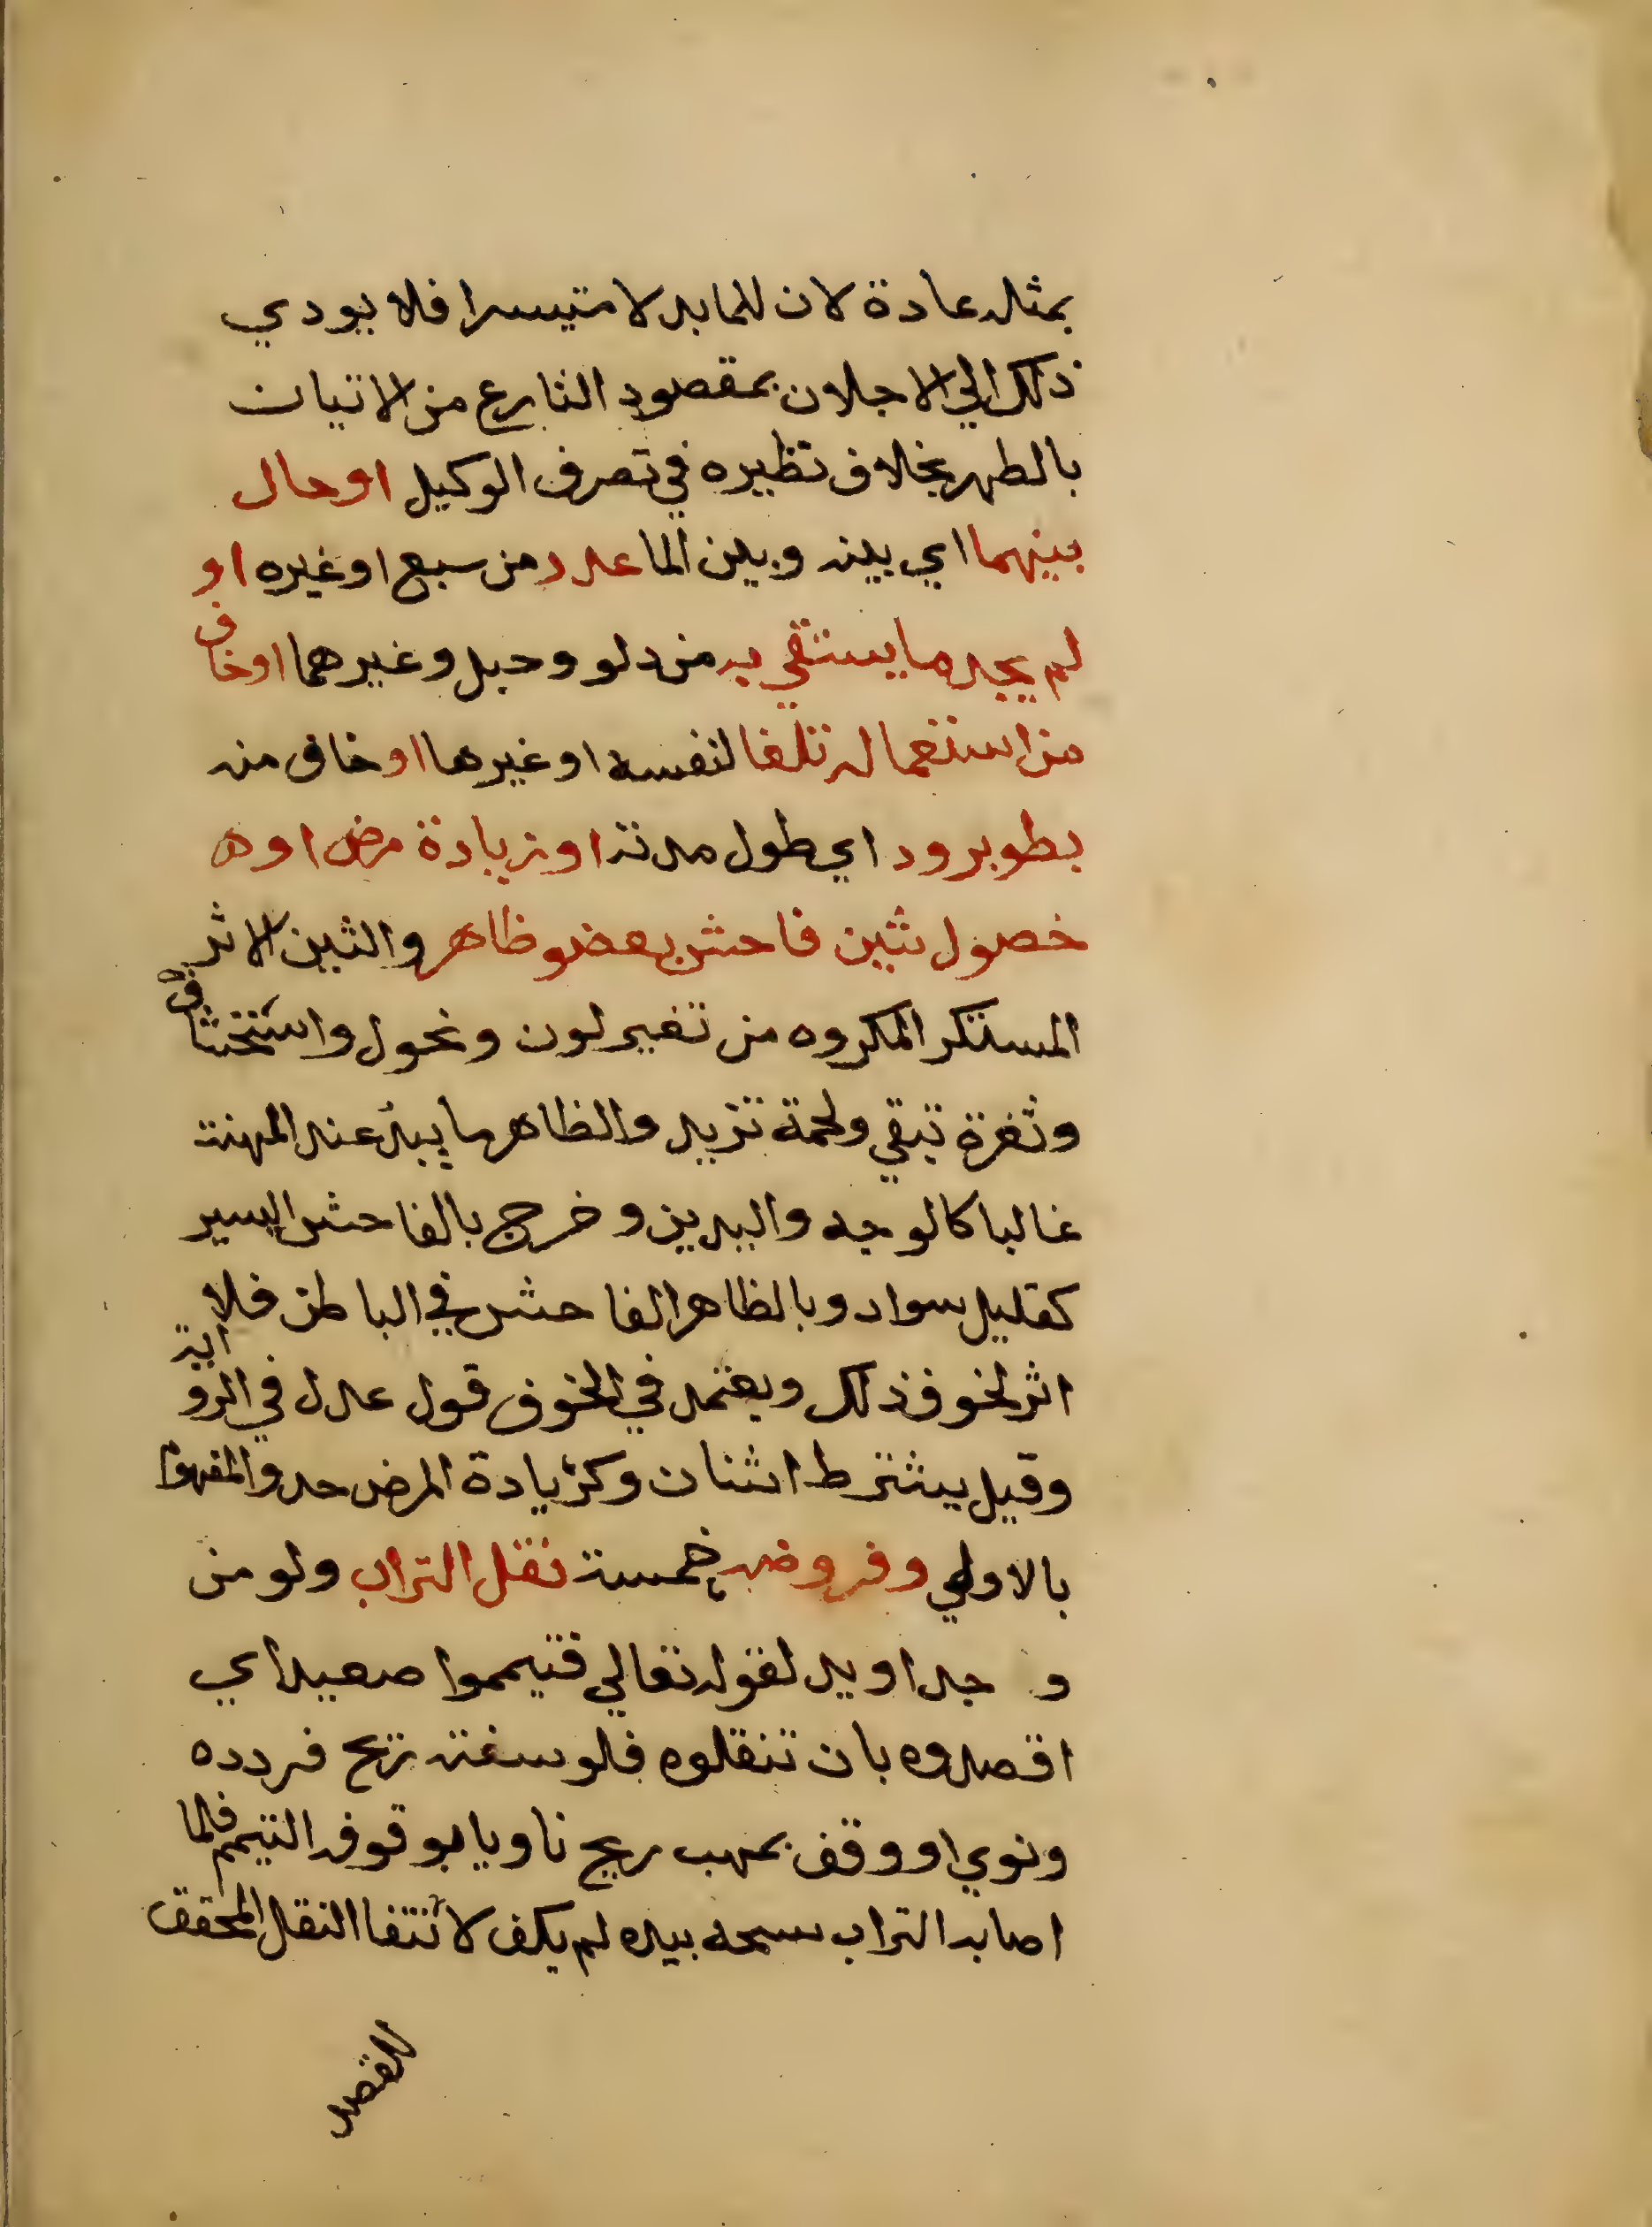 بمثله عادة لان للما بدلا متيسرا فلا يودي
ذلك الي الاجلان بمقصود الشارع من الاتيان
بالطهر بخلاف نظيره في تصرف الوكيل او حال
بينهما اي بينه وبين الما عدد من سبع او غيره او
لم يجد ما يستقي به من دلو وحبل وغيرهما او خاف
من استعماله تلفا لنفسه او غيرها او خاف منه
بطو برود اي طول مدته او زيادة مرض او ه
خصول شين فاحش بعضو ظاهر والشين الاثر
المستنكر المكروه من تغير لون ونحول واستحشاف
وثغرة تبقي ولحمة تزيد والظاهر ما يبد عند المهنة
غالبا كالوجه واليدين وخرج بالفاحش اليسير
كقليل سواد وبالظاهر الفاحش في الباطن فلا
اثر لخوف ذلك ويعتمد في الخوف قول عدل في الرواية
وقيل يشترط اثنان وكزيادة المرض حد والمفهوا
بالاولي وفروضه خمسة نقل التراب ولو من
و جه او يد لقوله تعالي فتيمموا صعيدا اي
اقصدوه بان تنقلوه فلو سفته ريح فردده
ونوي او وقف بمهب ريح ناويا بوقوفه التيمم فلما
اصابه التراب مسحه بيده لم يكف لانتفا النقل المحقق
للقصد